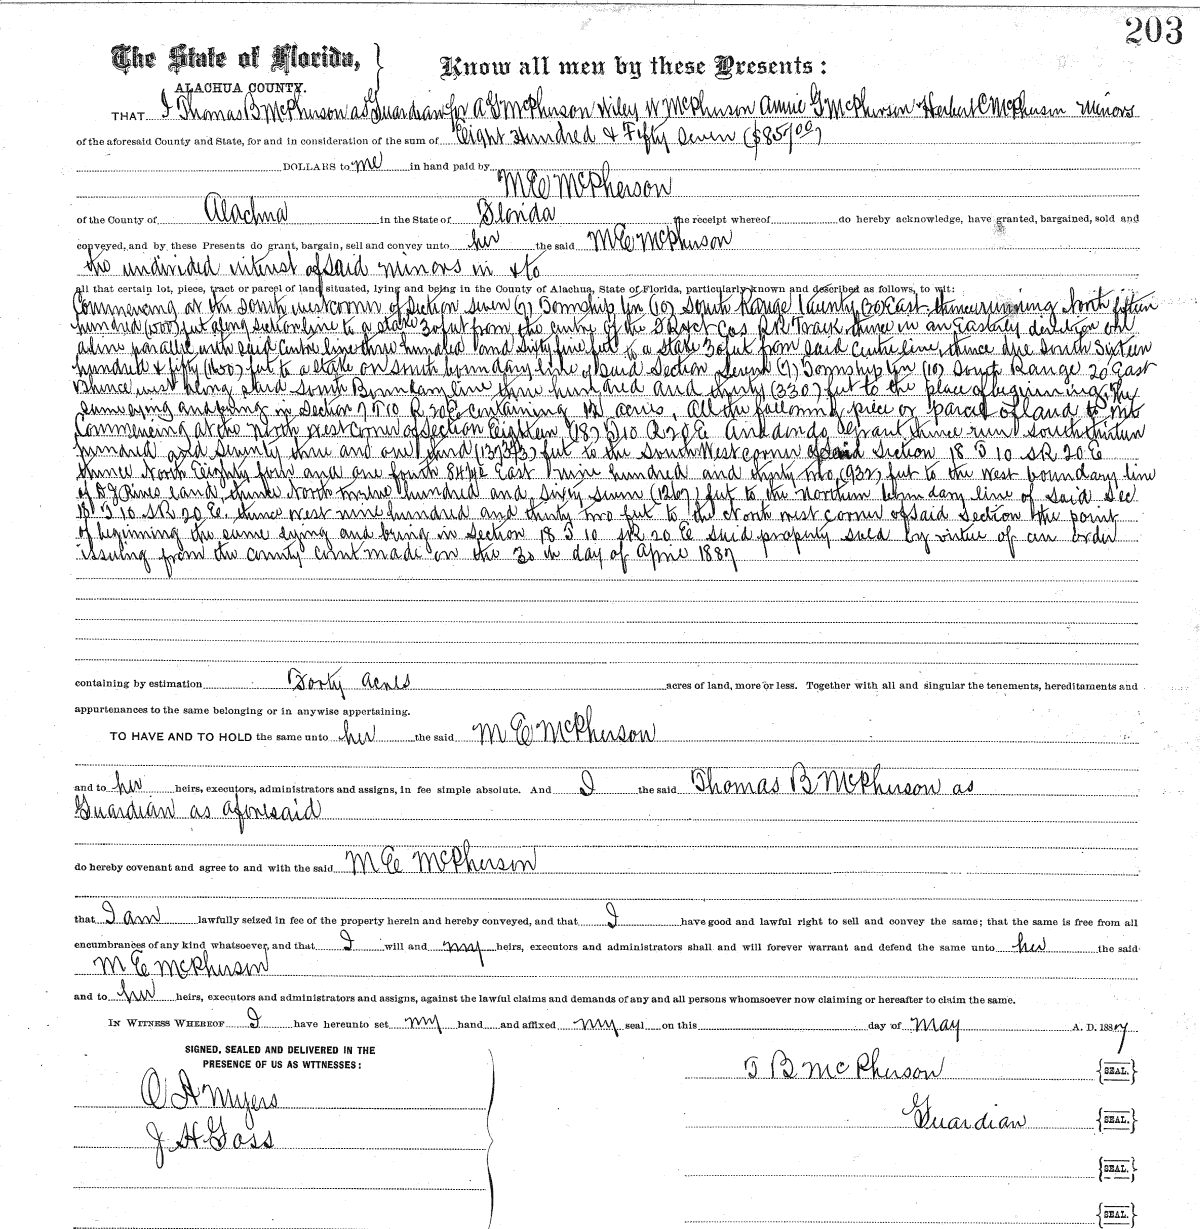 203
The State of Florida,
ALACHUA COUNTY.
Know all men by these Presents:
THAT I Thomas B McPherson as Guardian for A G McPherson Wiley W McPherson Annie G McPherson Herbert C McPherson minors
of the aforesaid County and State, for and in consideration of the sum of Eight Hundred & Fifty Seven ($857.00)
DOLLARS to me in hand paid by
M E McPherson
of the County of Alachua in the State of Florida the receipt whereof do hereby acknowledge, have granted, bargained, sold and
conveyed, and by these Presents do grant, bargain, sell and convey unto her the said M E McPherson
the undivided interest of said minors in & to
all that certain lot, piece, tract or parcel of land situated, lying and being in the County of Alachua, State of Florida, particularly known and described as follows, to wit:
Commencing at the South west corner of Section seven (7) Township Ten (10) South Range Twenty (20) East thence running North fifteen
hundred (1500) feet along Section line to a stake 30 feet from the centre of the R R Track thence in an Easterly direction on
a line parallel with said Centre line three hundred and sixty five feet to a stake 30 feet from said centre line, thence due South Sixteen
hundred & fifty (1650) feet to a stake on South boundary line of said Section Seven (7) Township Ten (10) South Range 20 East
Thence west along said South Boundary line three hundred and thirty (330) feet to the place of beginning, The
same lying and being in Section 7 T 10 R 20 E containing 12 acres, All the following piece or parcel of land to wit
Commencing at the North West corner of Section Eighteen (18) T 10 R 20 E thence run South thirteen
hundred and seventy three and one third (1373 1/3) feet to the South West corner of said Section 18 T 10 S R 20 E
thence North Eighty four and one fourth 84 1/4 East nine hundred and thirty two (932) feet to the West boundary line
of land, thence North twelve hundred and sixty seven (1267) feet to the Northern boundary line of said Sec
18 T 10 S R 20 E. thence West nine hundred and thirty two feet to the North west corner of said Section the point
of beginning the same lying and being in Section 18 T 10 S R 20 E said property sold by virtue of an order
issuing from the County Court made on the 30th day of April 1887
containing by estimation Forty acres acres of land, more or less. Together with all and singular the tenements, hereditaments and
appurtenances to the same belonging or in anywise appertaining.
TO HAVE AND TO HOLD the same unto her the said M E McPherson
and to her heirs, executors, administrators and assigns, in fee simple absolute. And I the said Thomas B McPherson as
Guardian as aforesaid
do hereby covenant and agree to and with the said M E McPherson
that I am lawfully seized in fee of the property herein and hereby conveyed, and that I have good and lawful right to sell and convey the same; that the same is free from all
encumbrances of any kind whatsoever, and that I will and my heirs, executors and administrators shall and will forever warrant and defend the same unto her the said
M E McPherson
and to her heirs, executors and administrators and assigns, against the lawful claims and demands of any and all persons whomsoever now claiming or hereafter to claim the same.
IN WITNESS WHEREOF I have hereunto set my hand and affixed my seal on this day of May A. D. 1887
SIGNED, SEALED AND DELIVERED IN THE
PRESENCE OF US AS WITNESSES:
T B McPherson SEAL.
O A Myers
Guardian SEAL.
J H Goss
SEAL.
SEAL.